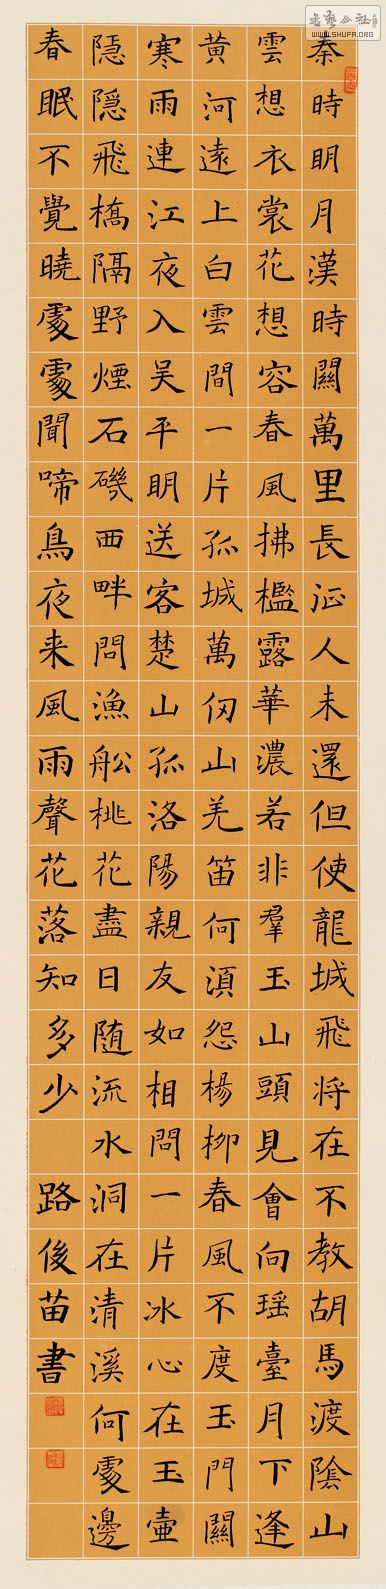 秦時明月漢時關萬里長征人未還但使龍城飛将在不教胡馬渡陰山
雲想衣裳花想容春風拂檻露華濃若非羣玉山頭見會向瑶臺月下逢
黄河遠上白雲間一片孤城萬仞山羌笛何湏怨楊柳春風不度玉門關
寒雨連江夜入吴平明送客楚山孤洛陽親友如相問一片冰心在玉壷
隱隱飛橋隔野煙石磯西畔問漁船桃花盡日随流水洞在清溪何處邊
春眠不覺曉處處聞啼鳥夜来風雨聲花落知多少 路後苗書
WWW.SHUFA.ORG